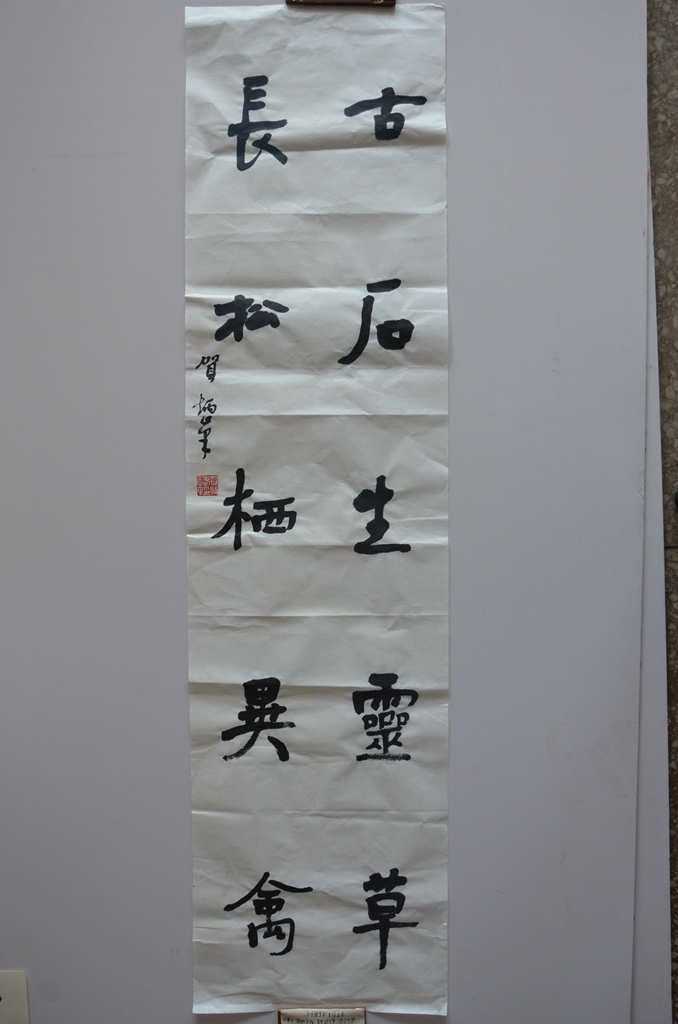 古石生靈草
長松栖異禽
賀炳筆